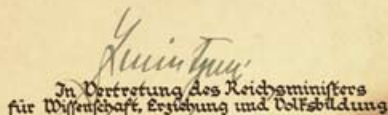 In Vertretung des Reichsministers
für Wissenschaft, Erziehung und Volksbildung